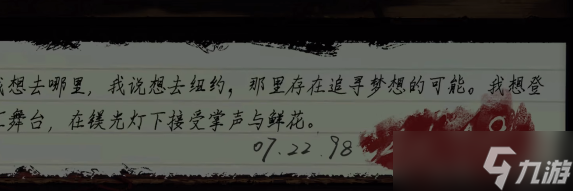 想去哪里，我说想去纽约，那里存在追寻梦想的可能。我想登
舞台，在镁光灯下接受掌声与鲜花。
07.22.98
九游